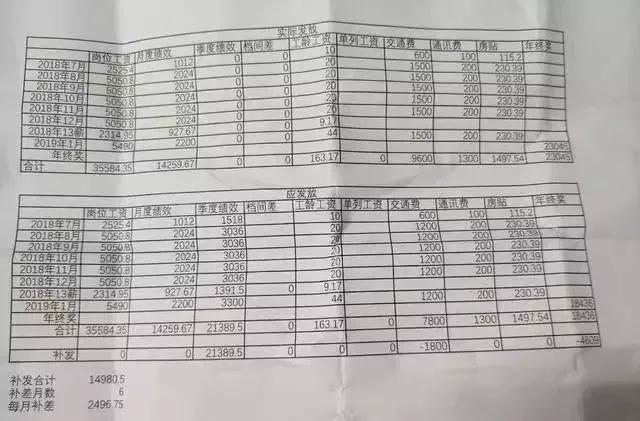 实际发放
岗位工资 月度绩效 季度绩效 档间差 工龄工资 单列工资 交通费 通讯费 房贴 年终奖
2018年7月 2525.4 1012 0 0 10 600 100 115.2
2018年8月 5050.8 2024 0 0 20 1500 200 230.39
2018年9月 5050.8 2024 0 0 20 1500 200 230.39
2018年10月 5050.8 2024 0 0 20 1500 200 230.39
2018年11月 5050.8 2024 0 0 20 1500 200 230.39
2018年12月 5050.8 2024 0 0 20 1500 200 230.39
2018年13薪 2314.95 927.67 0 0 9.17
2019年1月 5490 2200 0 0 44 1500 200 230.39
年终奖 23045
合计 35584.35 14259.67 0 0 163.17 0 9600 1300 1497.54 23045
应发放
岗位工资 月度绩效 季度绩效 档间差 工龄工资 单列工资 交通费 通讯费 房贴 年终奖
2018年7月 2525.4 1012 1518 10 600 100 115.2
2018年8月 5050.8 2024 3036 20 1200 200 230.39
2018年9月 5050.8 2024 3036 20 1200 200 230.39
2018年10月 5050.8 2024 3036 20 1200 200 230.39
2018年11月 5050.8 2024 3036 20 1200 200 230.39
2018年12月 5050.8 2024 3036 20 1200 200 230.39
2018年13薪 2314.95 927.67 1391.5 9.17
2019年1月 5490 2200 3300 44 1200 200 230.39
年终奖 18436
合计 35584.35 14259.67 21389.5 0 163.17 0 7800 1300 1497.54 18436
补发 0 0 21389.5 0 0 0 -1800 0 0 -4609
补发合计 14980.5
补差月数 6
每月补差 2496.75